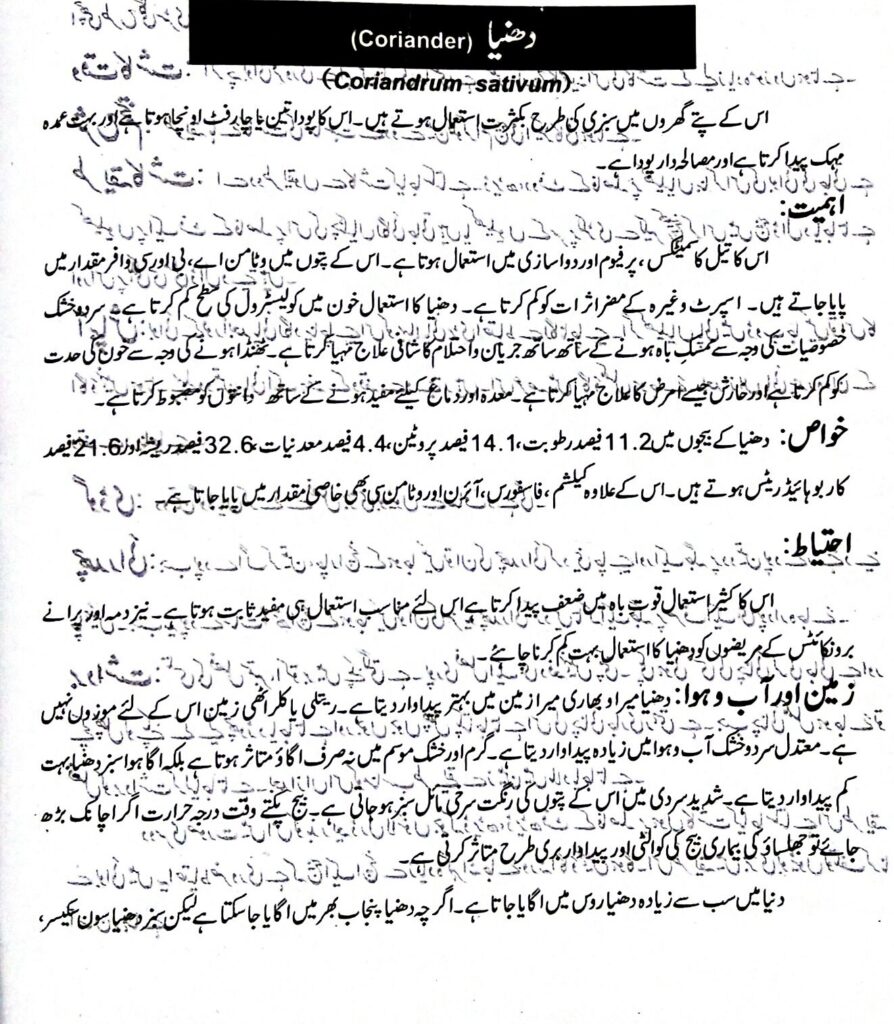 دھنیا (Coriander)
(Coriandrum sativum)
اس کے پتے گھروں میں سبزی کی طرح بکثرت استعمال ہوتے ہیں۔ اس کا پودا تین یا چار فٹ اونچا ہوتا ہے اور بہت عمدہ
مہک پیدا کرتا ہے اور مصالحہ دار پودا ہے۔
اہمیت:
اس کا تیل کاسمیٹکس، پرفیوم اور دوا سازی میں استعمال ہوتا ہے۔ اس کے پتوں میں وٹامن اے، بی اور سی وافر مقدار میں
پایا جاتے ہیں۔ اسپرٹ وغیرہ کے مضر اثرات کو کم کرتا ہے۔ دھنیا کا استعمال خون میں کولیسٹرول کی سطح کم کرتا ہے۔ سرد و خشک
خصوصیات کی وجہ سے ممسک باہ ہونے کے ساتھ ساتھ جریان و احتلام کا شافی علاج مہیا کرتا ہے۔ ٹھنڈا ہونے کی وجہ سے خون کی حدت
کو کم کرتا ہے اور خارش جیسے امراض کا علاج مہیا کرتا ہے۔ معدہ اور دماغ کیلئے مفید ہونے کے ساتھ دانتوں کو مضبوط کرتا ہے۔
خواص: دھنیا کے بیجوں میں 11.2 فیصد رطوبت، 14.1 فیصد پروٹین، 4.4 فیصد معدنیات، 32.6 فیصد ریشہ اور 21.6 فیصد
کاربوہائیڈریٹس ہوتے ہیں۔ اس کے علاوہ کیلشم، فاسفورس، آئرن اور وٹامن سی بھی خاصی مقدار میں پایا جاتا ہے۔
احتیاط:
اس کا کثیر استعمال قوت باہ میں ضعف پیدا کرتا ہے اس لئے مناسب استعمال ہی مفید ثابت ہوتا ہے۔ نیز دمہ اور پرانے
برونکائٹس کے مریضوں کو دھنیا کا استعمال بہت کم کرنا چاہئے۔
زمین اور آب و ہوا: دھنیا میرا و بھاری میرا زمین میں بہتر پیداوار دیتا ہے۔ ریتلی یا کلراٹھی زمین اس کے لئے موزوں نہیں
ہے۔ معتدل سرد و خشک آب و ہوا میں زیادہ پیداوار دیتا ہے۔ گرم اور خشک موسم میں نہ صرف اگاؤ متاثر ہوتا ہے بلکہ اگا ہوا سبز دھنیا بہت
کم پیداوار دیتا ہے۔ شدید سردی میں اس کے پتوں کی رنگت سرخی مائل سبز ہو جاتی ہے۔ بیج پکتے وقت درجہ حرارت اگر اچانک بڑھ
جائے تو جھلساؤ کی بیماری بیج کی کوالٹی اور پیداوار بری طرح متاثر کرتی ہے۔
دنیا میں سب سے زیادہ دھنیا روس میں اگایا جاتا ہے۔ اگرچہ دھنیا پنجاب بھر میں اگایا جا سکتا ہے لیکن سبز دھنیا سون سکیسر،